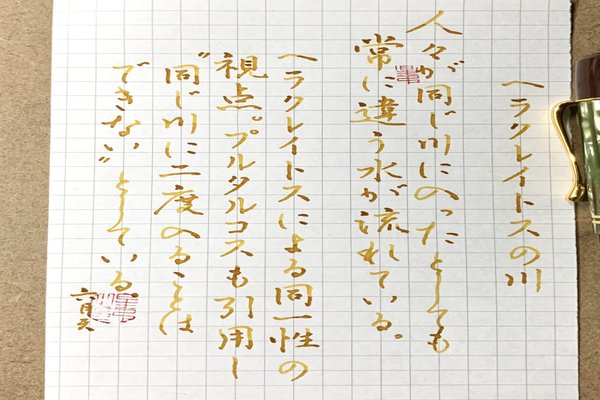 ヘラクレイトスの川
人々が同じ川に入ったとしても
常に違う水が流れている。
ヘラクレイトスによる同一性の
視点。プルタルコスも引用し
“同じ川に二度入ることは
できない”としている。